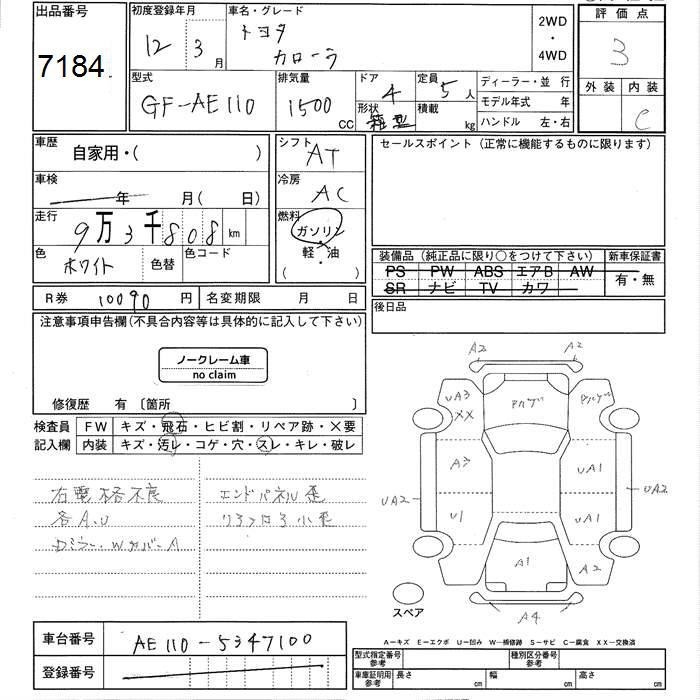 出品番号 初度登録年月 車名・グレード 2WD・4WD 評価点
7184. 12年 3月 トヨタ カローラ 3
型式 排気量 ドア 定員 ディーラー・並行 外装 内装
GF-AE110 1500cc 4 5人 モデル年式 年 C
形状 箱型 積載 kg ハンドル 左・右
車歴 自家用・( ) シフト AT セールスポイント（正常に機能するものに限ります）
車検 年 月(日) 冷房 AC
走行 9万3千808km 燃料 ガソリン・軽・油( )
色 ホワイト 色替 色コード
装備品（純正品に限り○をつけて下さい） 新車保証書
PS PW ABS エアB AW 有・無
SR ナビ TV カワ
R券 10090円 名変期限 月 日 後日品
注意事項申告欄(不具合内容等は具体的に記入して下さい)
ノークレーム車
no claim
修復歴 有〔箇所 〕
検査員 FW キズ・飛石・ヒビ割・リペア跡・×要
記入欄 内装 キズ・汚レ・コゲ・穴・スレ・キレ・破レ
右電格不良 エンドパネル歪
各A.U
A2 A2
UA3 XX
A3 UA1
UA2 UA2
U1 UA1
A1 A2
A4
スペア
A―キズ E―エクボ U―凹み W―補修跡 S―サビ C―腐食 XX―交換済
車台番号 AE110-5347100
登録番号
型式指定番号 参考 種別区分番号 参考
車庫証明用 参考 長さ 幅 高さ